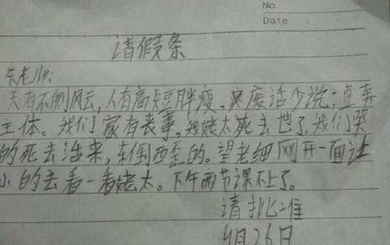 No.
Date
请假条
朱老师:
天有不测风云,人有高短胖瘦。废话少说;直奔
主体。我们家有丧事。姥姥太死去也了我们哭
的死去活来,东倒西歪的。望老细网开一面让
小的去看一看姥太。下午两节课不上了。
请批准
4月26日